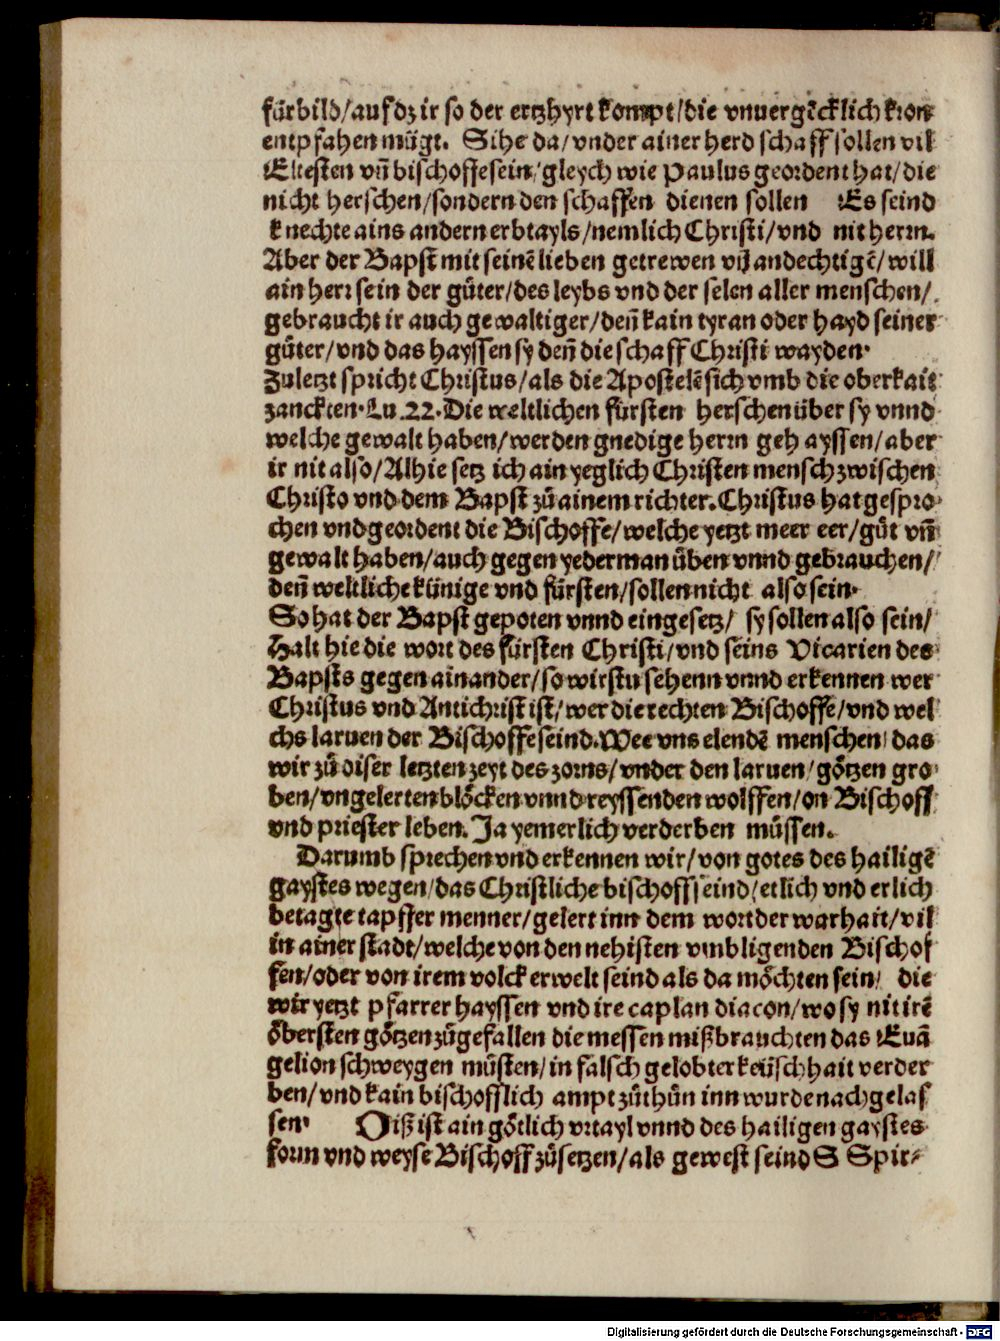 fürbild/auf dz ir so der ertzhyrt kompt/die vnuergēcklich kron
entpfahen mügt. Sihe da/vnder ainer herd schaff sollen vil
Eltesten vn̄ bischoffe sein/gleych wie Paulus geordent hat/die
nicht herschen/sondern den schaffen dienen sollen Es seind
knechte ains andern erbtayls/nemlich Christi/vnd nit herrn.
Aber der Bapst mit seinē lieben getrewen vn̄ andechtigē/will
ain herr sein der gůter/des leybs vnd der selen aller menschen/
gebraucht ir auch gewaltiger/den̄ kain tyran oder hayd seiner
gůter/vnd das hayssen sy den̄ die schaff Christi wayden.
Zuletzt spricht Christus/als die Apostelē sich vmb die oberkait
zanckten. Lu. 22. Die weltlichen fürsten herschen über sy vnnd
welche gewalt haben/werden gnedige herrn gehayssen/aber
ir nit also/Alhie setz ich ain yeglich Christen mensch zwischen
Christo vnd dem Bapst zů ainem richter. Christus hat gespro-
chen vnd geordent die Bischoffe/welche yetzt meer eer/gůt vn̄
gewalt haben/auch gegen yederman üben vnnd gebrauchen/
den̄ weltliche künige vnd fürsten/sollen nicht also sein.
So hat der Bapst gepoten vnnd eingesetz/ sy sollen also sein/
Halt hie die wort des fürsten Christi/vnd seins Vicarien des
Bapsts gegen ainander/so wirstu sehenn vnnd erkennen wer
Christus vnd Antichrist ist/wer die rechten Bischoffe/vnd wel
chs laruen der Bischoffe seind. Wee vns elendē menschen/das
wir zů diser letzten zeyt des zorns/vnder den laruen/götzen gro-
ben/vngelerten blöcken vnnd reyssenden wolffen/on Bischoff
vnd priester leben. Ja yemerlich verderben müssen.
Darumb sprechen vnd erkennen wir/von gotes des hailigē
gaystes wegen/das Christliche bischoff seind/etlich vnd erlich
betagte tapffer menner/gelert inn dem wort der warhait/vil
in ainer stadt/welche von den nehisten vmbligenden Bischof
fen/oder von irem volck erwelt seind als da möchten sein/ die
wir yetzt pfarrer hayssen vnd ire caplan diacon/wo sy nit irē
öbersten götzen zůgefallen die messen mißbrauchten das Euā
gelion schweygen müsten/in falsch gelobter keüschhait verder
ben/vnd kain bischofflich ampt zůthůn inn wurde nachgelas
sen. Diß ist ain götlich vrtayl vnnd des hailigen gaystes
form vnd weyse Bischoff zůsetzen/als gewest seind S Spir-
Digitalisierung gefördert durch die Deutsche Forschungsgemeinschaft - DFG